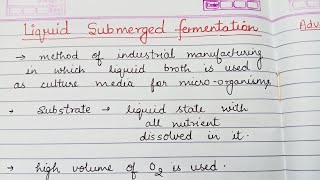 Liquid Submerged fermentation
Adv
→ method of industrial manufacturing
in which liquid broth is used
as culture media for micro-organisms
• Substrate → liquid state with
all nutrient
dissolved in it.
→ high volume of O₂ is used.